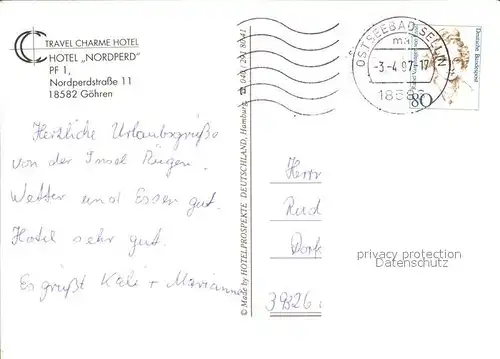 TRAVEL CHARME HOTEL
HOTEL „NORDPERD"
PF 1,
Nordperdstraße 11
18582 Göhren
Herzliche Urlaubsgrüße
von der Insel Rügen.
Wetter und Essen gut.
Hotel sehr gut.
Es grüßt Kali + Marianne
© Made by HOTELPROSPEKTE DEUTSCHLAND, Hamburg
OSTSEEBAD SELLIN
-3-4.97-17
Deutsche Bundespost
80
Herrn
Rud
Dorf
39326
privacy protection
Datenschutz